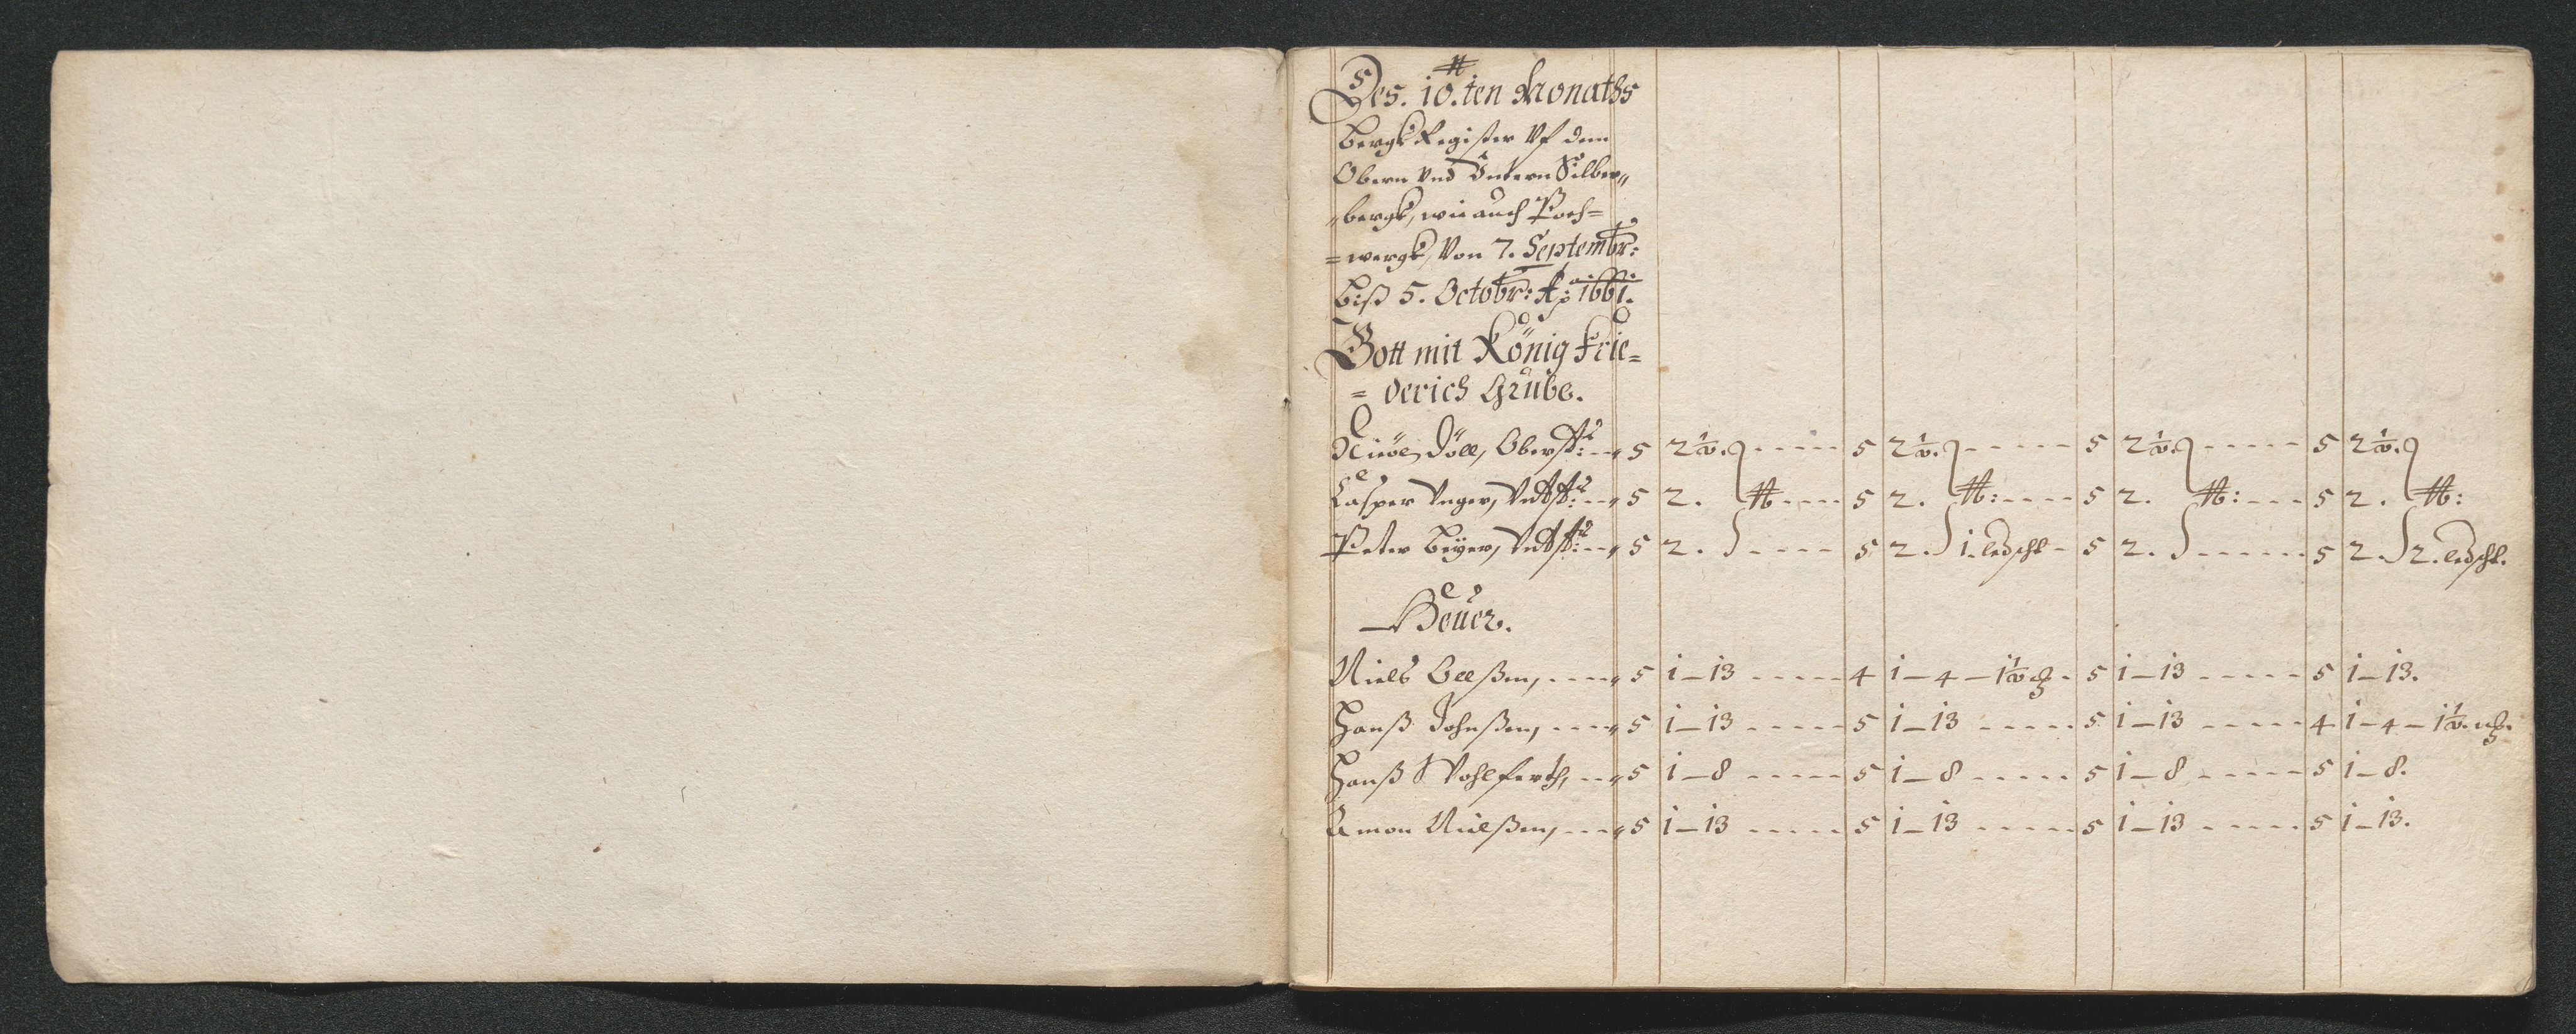 Des. 10.ten Monaths
Bergk Register Vf dem
Obern Vnd Vntern Silber„
„bergk, wie auch Poch=
=wergk, Von 7. Septembr:
biß 5. Octobr: Ao: 1661.
Gott mit König Frie=
=derich Grube.
Nicol Döll, Oberst: --- 5 2½. ----- 5 2½. ----- 5 2½. ----- 5 2½.
Casper Unger, Vndst: --- 5 2. ---- 5 2. ---- 5 2. --- 5 2.
Peter Beyer, Vndst: --- 5 2. ---- 5 2. 1. ledschl - 5 2. ------ 5 2. 2. ledschl.
Heuer.
Niels Oelßen, ---- 5 1-13 ----- 4 1-4-1½ - 5 1-13 ----- 5 1-13.
Hanß Johnßen, ---- 5 1-13 ----- 5 1-13 ----- 5 1-13 ----- 4 1-4-1½
Hanß Wohlferth, --- 5 1-8 ----- 5 1-8 ----- 5 1-8 ----- 5 1-8.
Amon Nielßen, ---- 5 1-13 ----- 5 1-13 ----- 5 1-13 ----- 5 1-13.